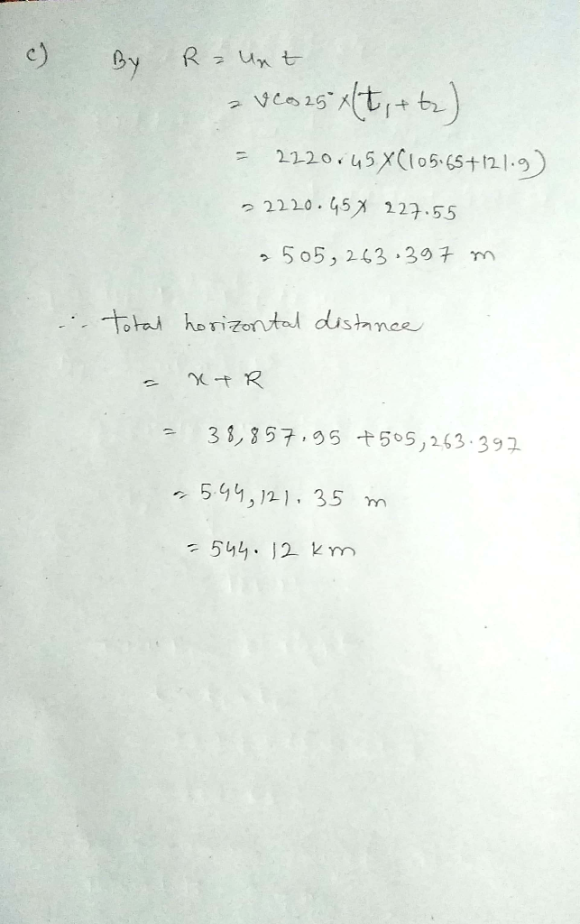 c) By R = uₓ t
= v cos 25° × (t₁ + t₂)
= 2220.45 × (105.65 + 121.9)
= 2220.45 × 227.55
= 505,263.397 m
∴ Total horizontal distance
= x + R
= 38,857.95 + 505,263.397
= 544,121.35 m
= 544.12 km